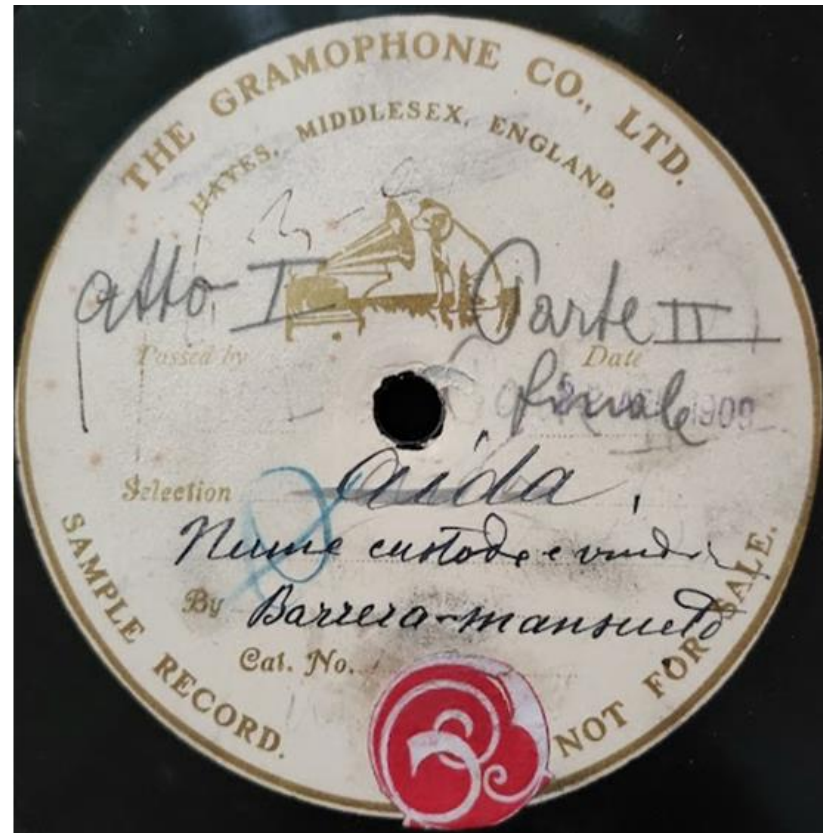 THE GRAMOPHONE CO., LTD.
HAYES, MIDDLESEX, ENGLAND.
Atto I Parte II
Passed by
Date
finale
1909
Selection Aida,
Nume custode e vindi
By Barrera-Mansueto
Cat. No.
SAMPLE RECORD.
NOT FOR SALE.